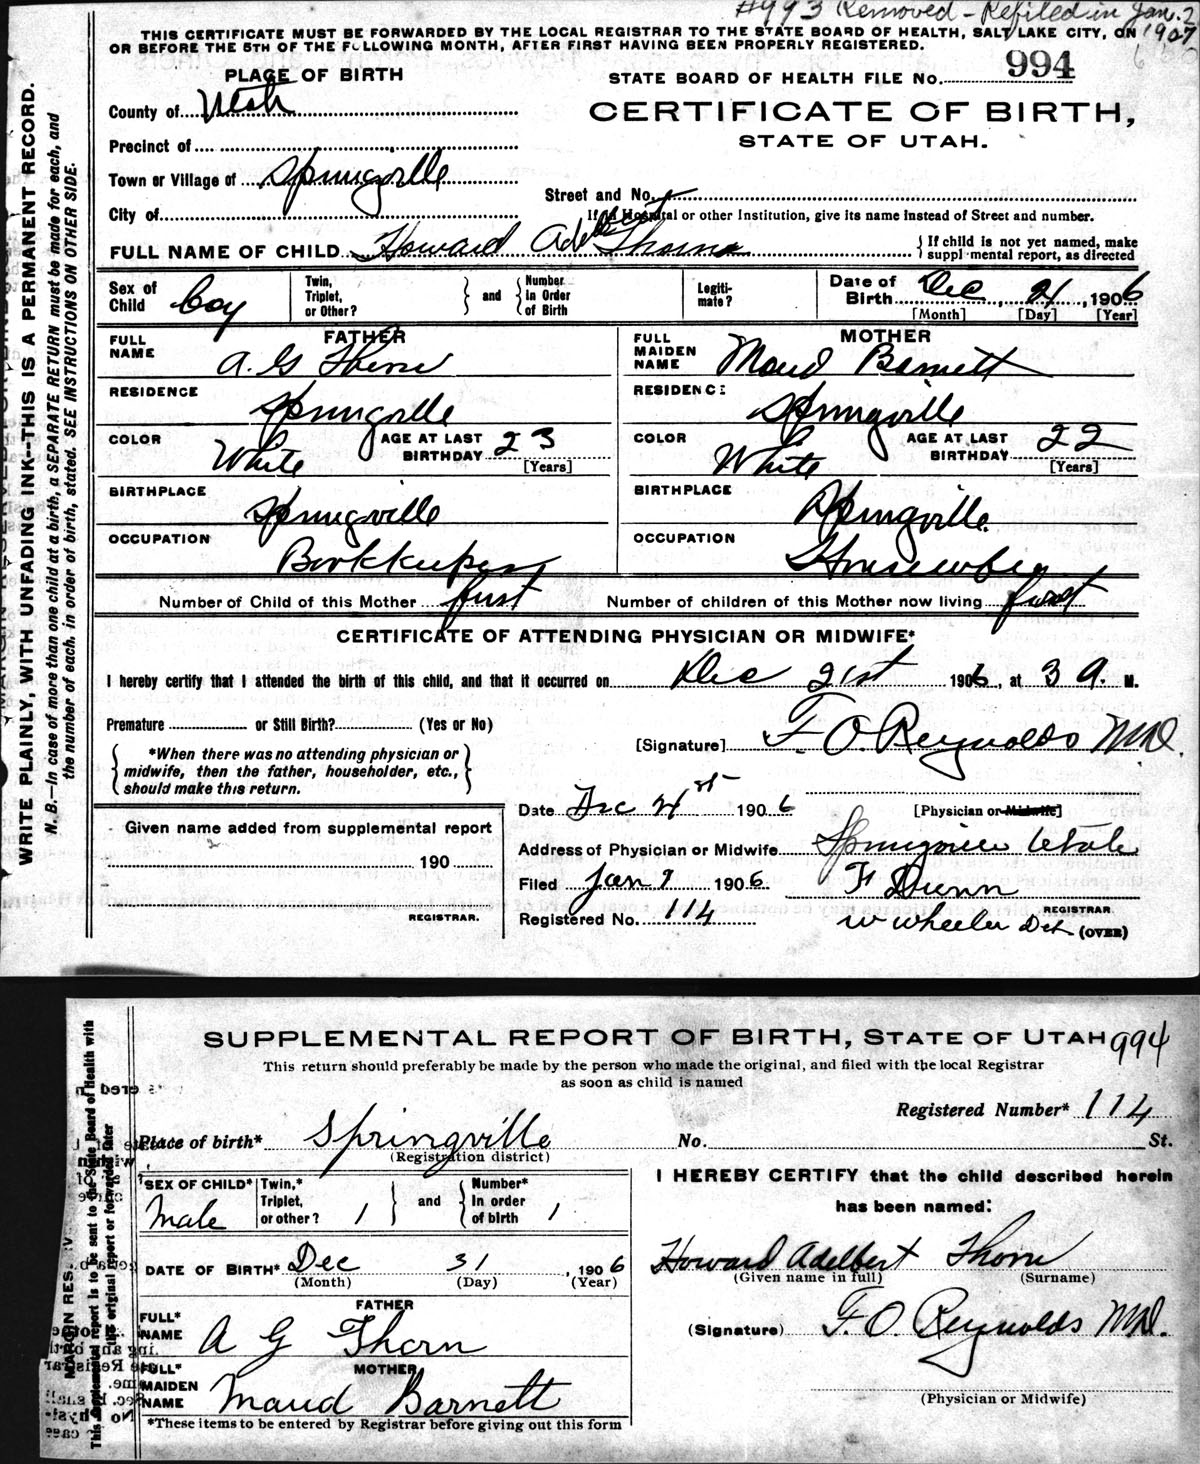 #993 Removed - Refiled in Jan. 2
1907
THIS CERTIFICATE MUST BE FORWARDED BY THE LOCAL REGISTRAR TO THE STATE BOARD OF HEALTH, SALT LAKE CITY, ON
OR BEFORE THE 5TH OF THE FOLLOWING MONTH, AFTER FIRST HAVING BEEN PROPERLY REGISTERED.
WRITE PLAINLY, WITH UNFADING INK--THIS IS A PERMANENT RECORD.
N. B.--In case of more than one child at a birth, a SEPARATE RETURN must be made for each, and
the number of each, in order of birth, stated. SEE INSTRUCTIONS ON OTHER SIDE.
PLACE OF BIRTH
County of Utah
Precinct of
Town or Village of Springville
City of
STATE BOARD OF HEALTH FILE No. 994
CERTIFICATE OF BIRTH,
STATE OF UTAH.
Street and No.
If in Hospital or other Institution, give its name instead of Street and number.
FULL NAME OF CHILD Howard Adelbert Thorne
If child is not yet named, make
supplemental report, as directed
Sex of Child boy Twin, Triplet, or Other? and Number In Order of Birth Legiti-mate? Date of Birth Dec 21, 1906
[Month] [Day] [Year]
FATHER MOTHER
FULL NAME A. G Thorn FULL MAIDEN NAME Maud Barnett
RESIDENCE Springville RESIDENCE Springville
COLOR White AGE AT LAST BIRTHDAY 23 [Years] COLOR White AGE AT LAST BIRTHDAY 22 [Years]
BIRTHPLACE Springville BIRTHPLACE Springville
OCCUPATION Bookkeeper OCCUPATION Housewife
Number of Child of this Mother first Number of children of this Mother now living first
CERTIFICATE OF ATTENDING PHYSICIAN OR MIDWIFE*
I hereby certify that I attended the birth of this child, and that it occurred on Dec 21st 1906, at 3 A. M.
Premature or Still Birth? (Yes or No)
[Signature] F. O. Reynolds MD.
*When there was no attending physician or
midwife, then the father, householder, etc.,
should make this return.
Date Dec 21st 1906 [Physician or Midwife]
Given name added from supplemental report
190
REGISTRAR.
Address of Physician or Midwife Springville Utah
Filed Jan 1906 F Dunn
REGISTRAR
Registered No. 114 W Wheeler Det (OVER)
SUPPLEMENTAL REPORT OF BIRTH, STATE OF UTAH 994
This return should preferably be made by the person who made the original, and filed with the local Registrar
as soon as child is named
Registered Number* 114
Place of birth* Springville No. St.
(Registration district)
MARGIN RES
This Supplemental report is to be sent to the State Board of Health with
the original report or forwarded later
SEX OF CHILD* Male Twin,* Triplet, or other? 1 and Number* In order of birth 1
DATE OF BIRTH* Dec 31, 1906
(Month) (Day) (Year)
FATHER
FULL* NAME A G Thorn
MOTHER
FULL* MAIDEN NAME Maud Barnett
*These items to be entered by Registrar before giving out this form
I HEREBY CERTIFY that the child described herein
has been named:
Howard Adelbert Thorn
(Given name in full) (Surname)
(Signature) F. O. Reynolds MD.
(Physician or Midwife)